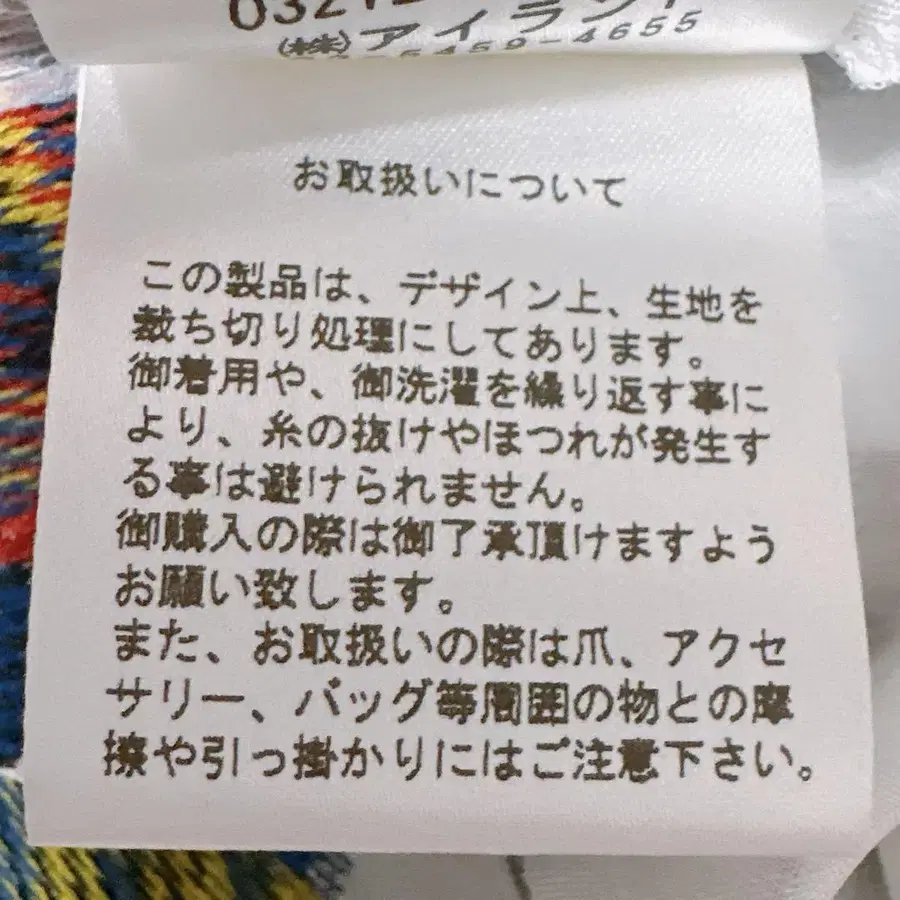 (株)アイラント
5459-4655
お取扱いについて
この製品は、デザイン上、生地を
裁ち切り処理にしてあります。
御着用や、御洗濯を繰り返す事に
より、糸の抜けやほつれが発生す
る事は避けられません。
御購入の際は御了承頂けますよう
お願い致します。
また、お取扱いの際は爪、アクセ
サリー、バッグ等周囲の物との摩
擦や引っ掛かりにはご注意下さい。